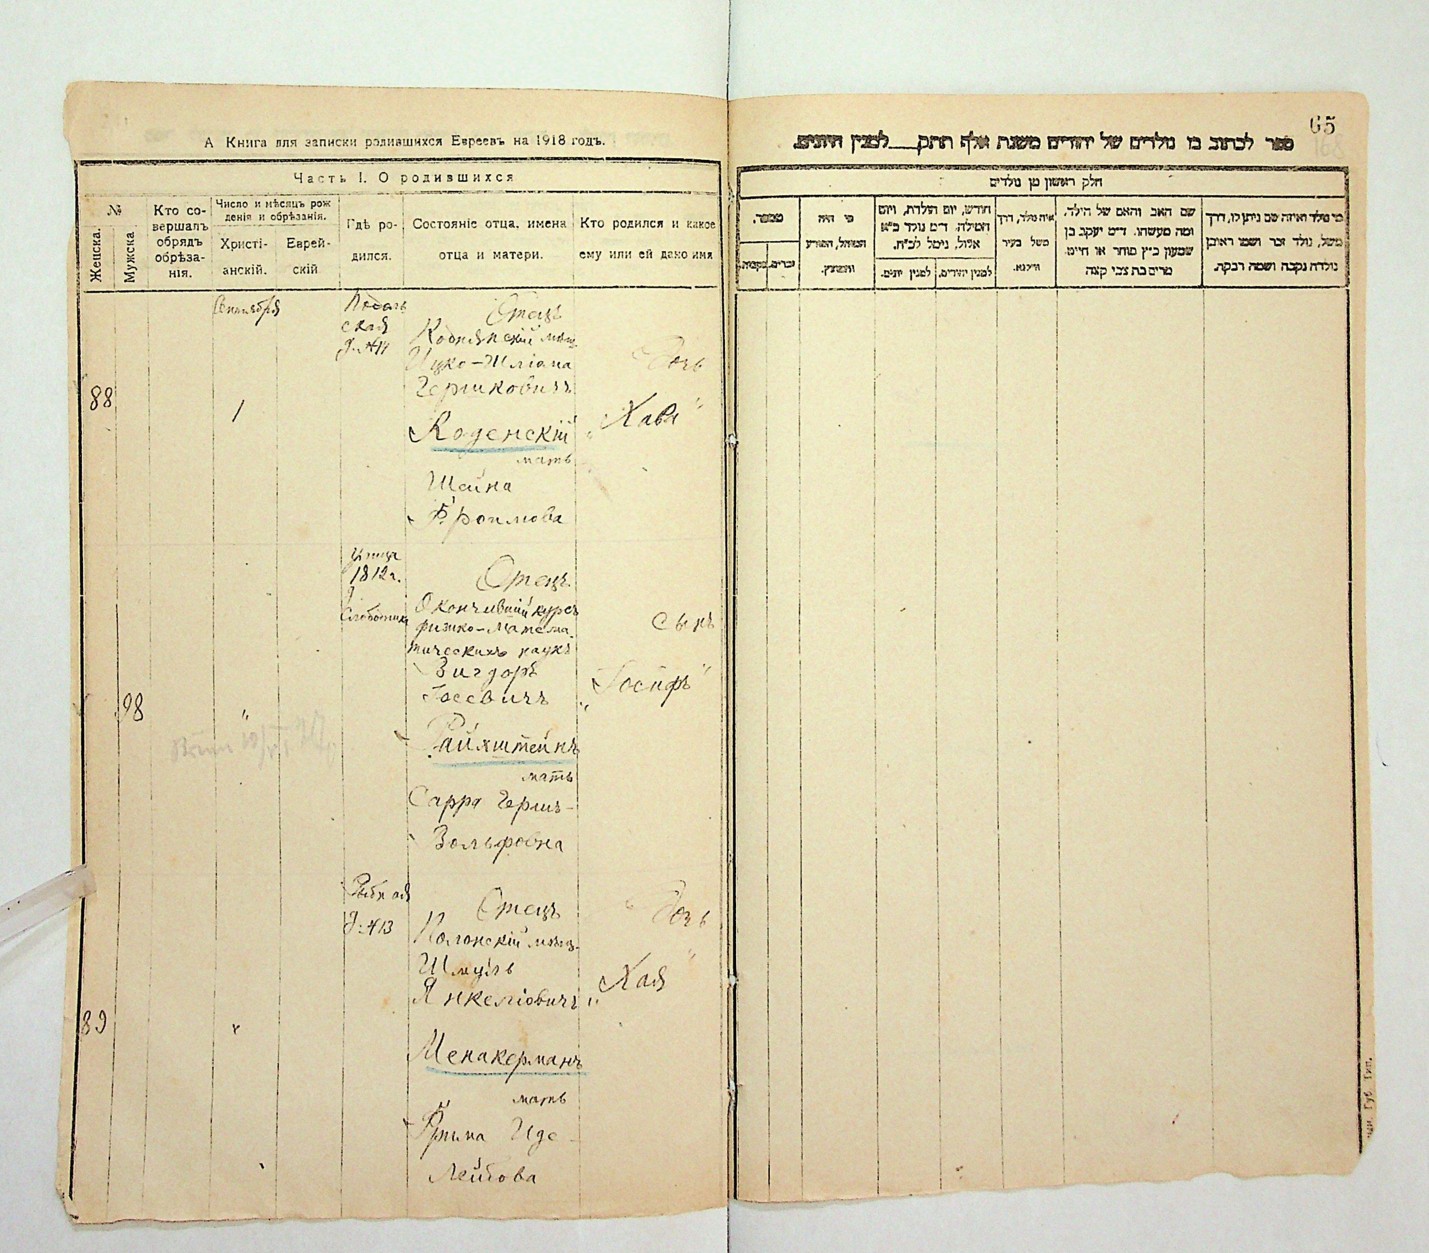 А Книга для записки родившихся Евреевъ на 1918 годъ.
Часть I. О родившихся
№
Женска.
Мужска
Кто со-
вершалъ
обрядъ
обрѣза-
нія.
Число и мѣсяцъ рож
денія и обрѣзанія.
Христі-
анскій.
Еврей-
скій
Гдѣ ро-
дился.
Состояніе отца, имена
отца и матери.
Кто родился и какое
ему или ей дано имя
88
Сентября
1
Подоль
ская
д. №14
Отецъ
Кодненскій мѣщ.
Ицко-Шліома
Гершковичъ
Коденскій
мать
Шейна
Фроимова
Дочь
„Хава"
98
"
Улица
1812 г.
Слободчика
Отецъ
Окончившій курсъ
физико-Матема
тическихъ наукъ
Вигдоръ
Іосевичъ
Райхштейнъ
мать
Сарра Герш-
Вольфовна
Сынъ
„Іосифъ"
89
"
Рыбная
д. №13
Отецъ
Полонскій мѣщ.
Шмуль
Янкеліовичъ
Менакерманъ
мать
Фрима Иде-
Лейбова
Дочь
„Хая"
65
168
ספר לכתוב בו נולדים של יהודים משנת אלף תתק___למנין היונים.
חלק ראשון מן נולדים
מספר.
זכרים.
נקבות.
מי היה
המוהל, הפורע
והמוצץ.
חודש, יום הולדת, ויום
המילה. ד״מ נולד כ״א
אלול, נימל לכ״ח.
למנין יונים.
למנין יהודים.
איה נולד, דרך
משל בעיר
ווילנא.
שם האב והאם של הילד.
ומה מעשהו. ד״מ יעקב בן
שמעון כ״ץ סוחר או חייט.
מרים בת צבי קצה
מי נולד ואיזה שם ניתן לו, דרך
משל, נולד זכר ושמו ראובן
נולדה נקבה ושמה רבקה.
Губ. Тип.